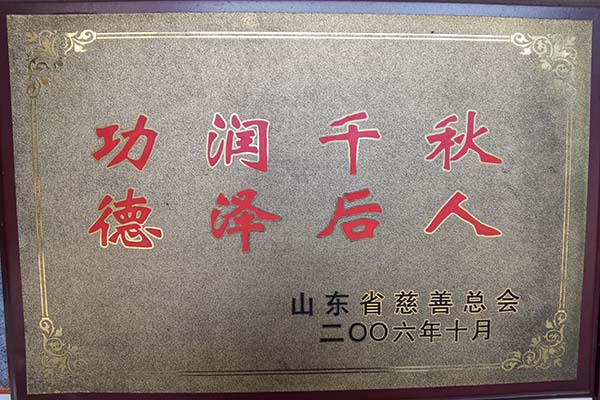 功润千秋
德泽后人
山东省慈善总会
二〇〇六年十月